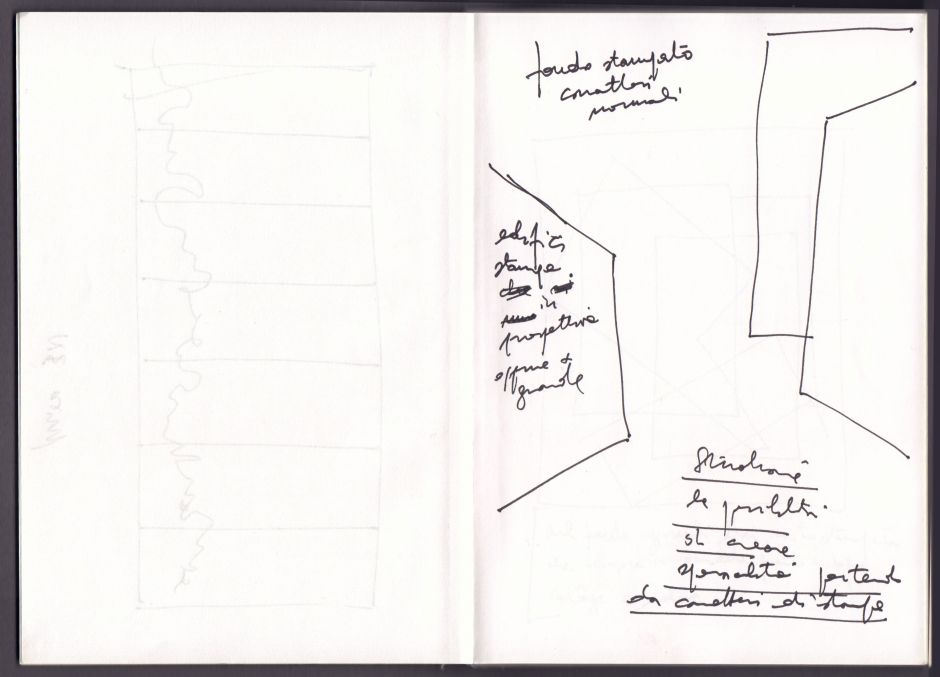 fondo stampato
caratteri
normali
edifici
stampe
in
prospettiva
oppure +
grande
Studiare
le possibilità
di creare
spazialità partendo
da caratteri di stampe